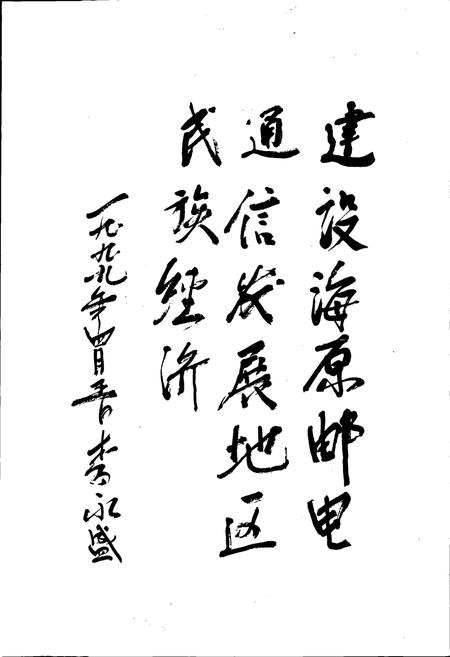 建设海原邮电
通信发展地区
民族经济
一九九九年四月二十日 李永盛